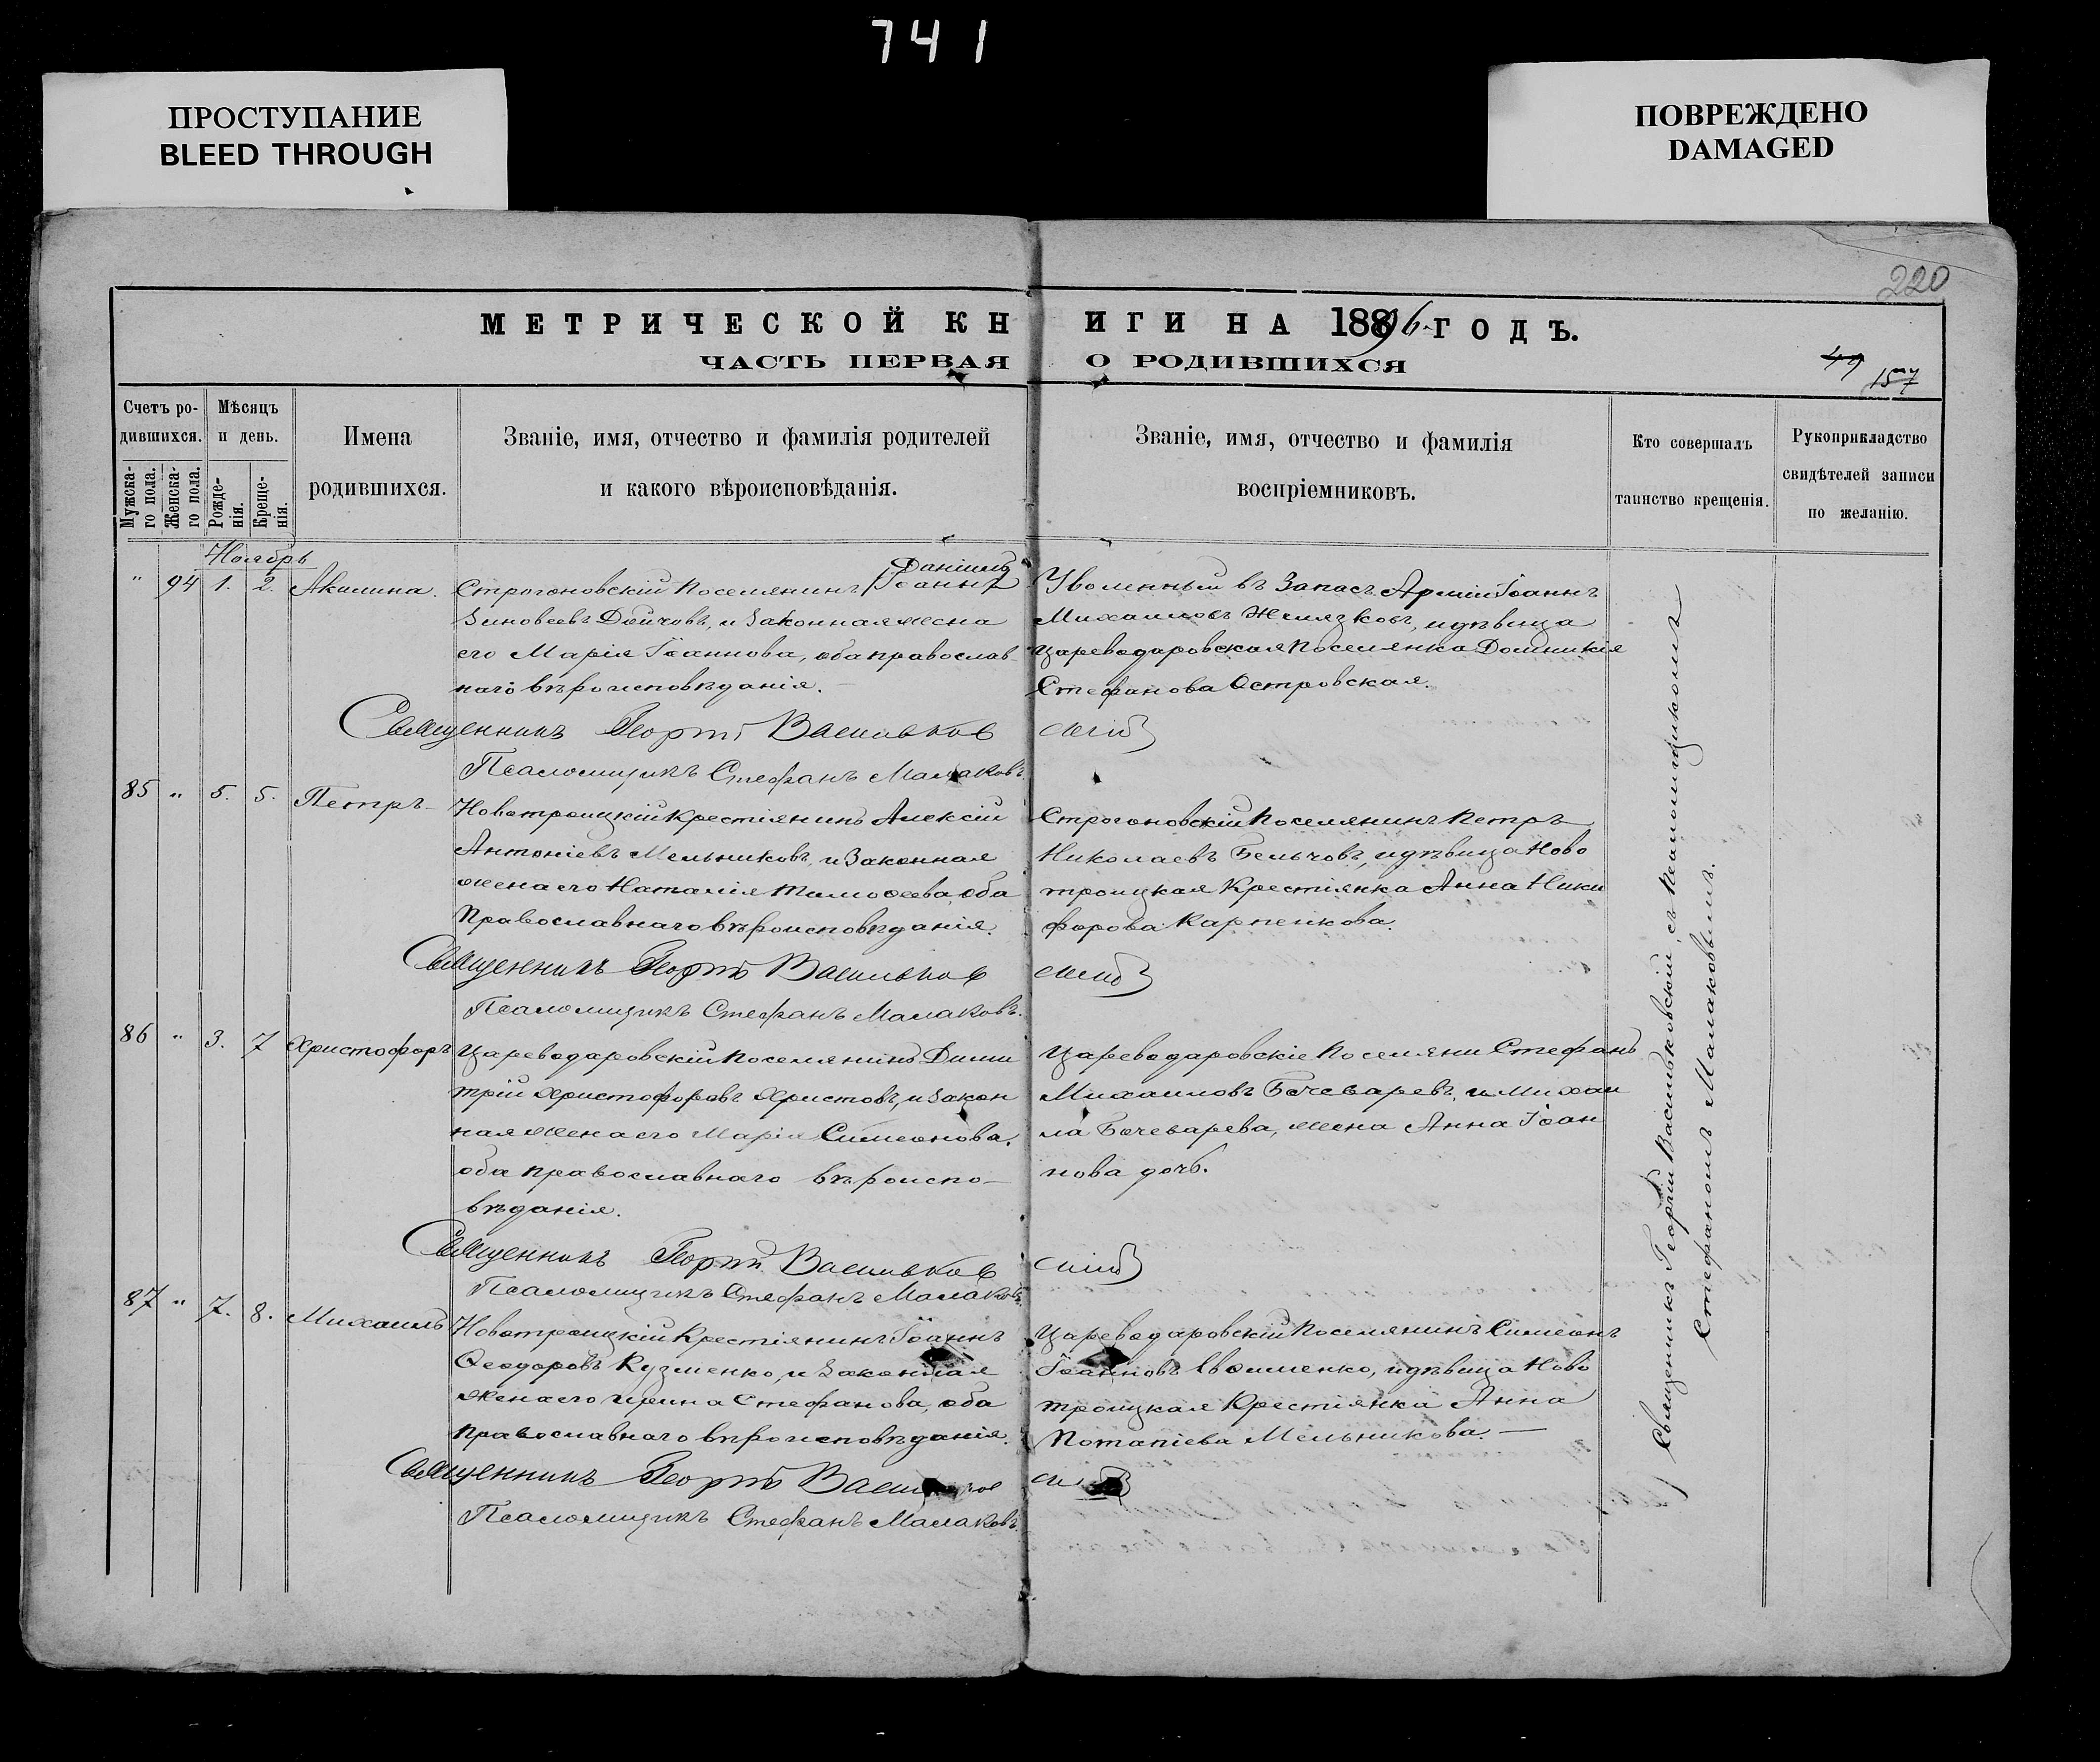 741
ПРОСТУПАНИЕ
BLEED THROUGH
ПОВРЕЖДЕНО
DAMAGED
220
МЕТРИЧЕСКОЙ КНИГИ НА 1896 ГОДЪ.
ЧАСТЬ ПЕРВАЯ О РОДИВШИХСЯ
49 157
Счетъ родившихся.
Мужскаго пола.
Женскаго пола.
Мѣсяцъ и день.
Рожденія.
Крещенія.
Имена
родившихся.
Званіе, имя, отчество и фамилія родителей
и какого вѣроисповѣданія.
Званіе, имя, отчество и фамилія
воспріемниковъ.
Кто совершалъ
таинство крещенія.
Рукоприкладство
свидѣтелей записи
по желанію.
Ноябрь
" 94 1. 2. Акилина.
Даніилъ
Строгоновскій Поселянинъ Іоаннъ
Зиновеевъ Дойчовъ, и Законная жена
его Марія Іоаннова, оба православ-
наго вѣроисповѣданія.
Уволенный въ Запасъ Арміи Іоаннъ
Михаиловъ Желязковъ, и дѣвица
Цареводаровская Поселянка Домникія
Стефанова Островская.
Священникъ Георгій Васильковскій
Псаломщикъ Стефанъ Малаковъ.
85 " 5. 5. Петръ
Новотроицкій Крестіянинъ Алексій
Антоніевъ Мельниковъ, и Законная
жена его Наталія Тимоѳеева, оба
Православнаго вѣроисповѣданія.
Строгоновскій Поселянинъ Петръ
Николаевъ Бельчовъ, и дѣвица Ново
троицкая Крестіянка Анна Ники
форова Карпенкова.
Священникъ Георгій Васильковскій
Псаломщикъ Стефанъ Малаковъ.
86 " 3. 7 Христофоръ
Цареводаровскій Поселянинъ Дими
трій Христофоровъ Христовъ, и Закон
ная жена его Марія Симеонова,
оба православнаго вѣроиспо-
вѣданія.
Цареводаровскіе Поселяни Стефанъ
Михаиловъ Бочеваревъ, и Михаи
ла Бочеварева, жена Анна Іоан
нова дочь.
Священникъ Георгій Васильковскій
Псаломщикъ Стефанъ Малаковъ.
87 " 7. 8. Михаилъ
Новотроицкій Крестіянинъ Іоаннъ
Ѳеодоровъ Кузменко, и Законная
Жена его Ирина Стефанова, оба
православнаго вѣроисповѣданія.
Цареводаровскій Поселянинъ Симеонъ
Іоанновъ Ивошенко, и дѣвица Ново
троицкая Крестіянка Анна
Потапіева Мельникова.
Священникъ Георгій
Псаломщикъ Стефанъ Малаковъ.
Священникъ Георгій Васильковскій, съ Псаломщикомъ
Стефаномъ Малаковымъ.